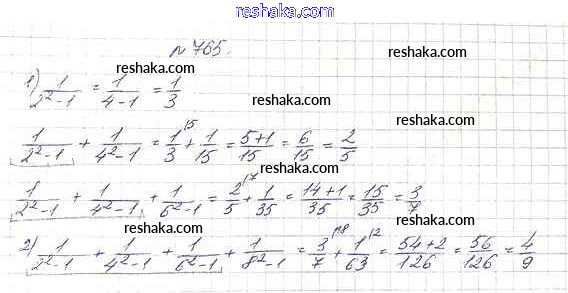 reshaka.com
№ 765.
reshaka.com reshaka.com
1) 1/(2²-1) = 1/(4-1) = 1/3
reshaka.com reshaka.com
1/(2²-1) + 1/(4²-1) = 1/3 + 1/15 = (5+1)/15 = 6/15 = 2/5
reshaka.com
1/(2²-1) + 1/(4²-1) + 1/(6²-1) = 2/5 + 1/35 = (14+1)/35 = 15/35 = 3/7
reshaka.com reshaka.com
2) 1/(2²-1) + 1/(4²-1) + 1/(6²-1) + 1/(8²-1) = 3/7 + 1/63 = (54+2)/126 = 56/126 = 4/9
reshaka.com
reshaka.com